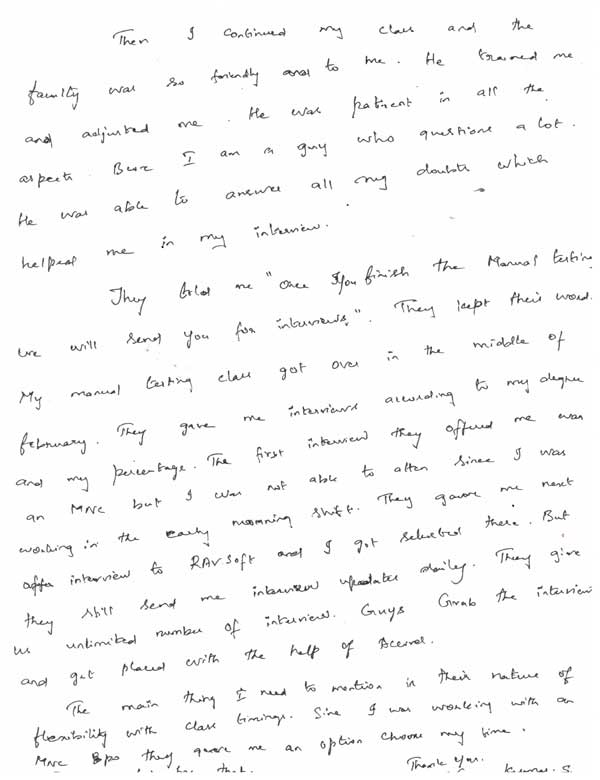 Then I continued my class and the
faculty was so friendly and to me. He trained me
and adjusted me. He was patient in all the
aspects. Becz I am a guy who questions a lot.
He was able to answer all my doubts which
helped me in my interview.
They told me "Once you finish the Manual testing
we will send you for interviews". They kept their word.
My manual testing class got over in the middle of
february. They gave me interviews according to my degree
and my percentage. The first interview they offered me was
an MNC but I was not able to atten since I was
working in the early morning shift. They gave me next
interview to RAVSoft and I got selected there. But
they still send me interview updates daily. They give
us unlimited number of interview. Guys Grab the interview
and get placed with the help of Accord.
The main thing I need to mention is their nature of
flexibility with class timings. Sine I was working with an
MNC Bpo they gave me an option choose my time.
that
Thank you.
Kumar. S